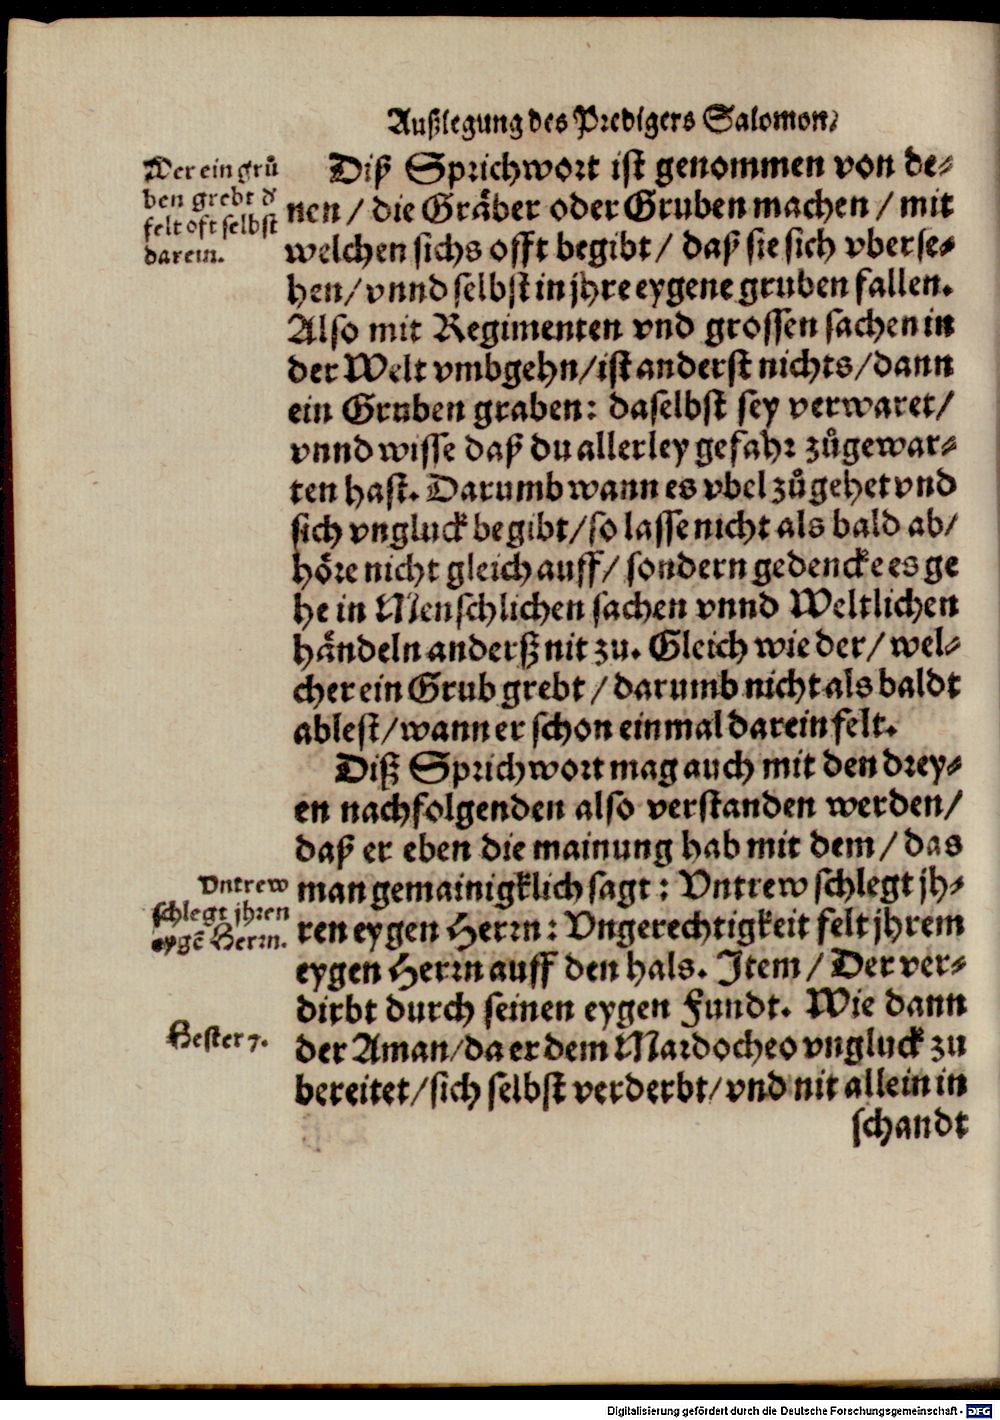 Außlegung des Predigers Salomon/
Wer ein grů
ben grebt d
felt oft selbst
darein.
Diß Sprichwort ist genommen von de-
nen / die Gräber oder Gruben machen / mit
welchen sichs offt begibt / daß sie sich vberse-
hen / vnnd selbst in jhre eygene gruben fallen.
Also mit Regimenten vnd grossen sachen in
der Welt vmbgehn / ist anderst nichts / dann
ein Gruben graben: daselbst sey verwaret /
vnnd wisse daß du allerley gefahr zůgewar-
ten hast. Darumb wann es vbel zůgehet vnd
sich vngluck begibt / so lasse nicht als bald ab /
höre nicht gleich auff / sondern gedencke es ge
he in Menschlichen sachen vnnd Weltlichen
händeln anderß nit zu. Gleich wie der / wel-
cher ein Grub grebt / darumb nicht als baldt
ablest / wann er schon einmal darein felt.
Diß Sprichwort mag auch mit den drey-
en nachfolgenden also verstanden werden /
daß er eben die mainung hab mit dem / das
Vntrew
schlegt jhren
eygē Herrn.
man gemainigklich sagt: Vntrew schlegt jh-
ren eygen Herrn: Vngerechtigkeit felt jhrem
eygen Herrn auff den hals. Item / Der ver-
dirbt durch seinen eygen Fundt. Wie dann
Hester 7.
der Aman / da er dem Mardocheo vngluck zu
bereitet / sich selbst verderbt / vnd nit allein in
schandt
Digitalisierung gefördert durch die Deutsche Forschungsgemeinschaft - DFG